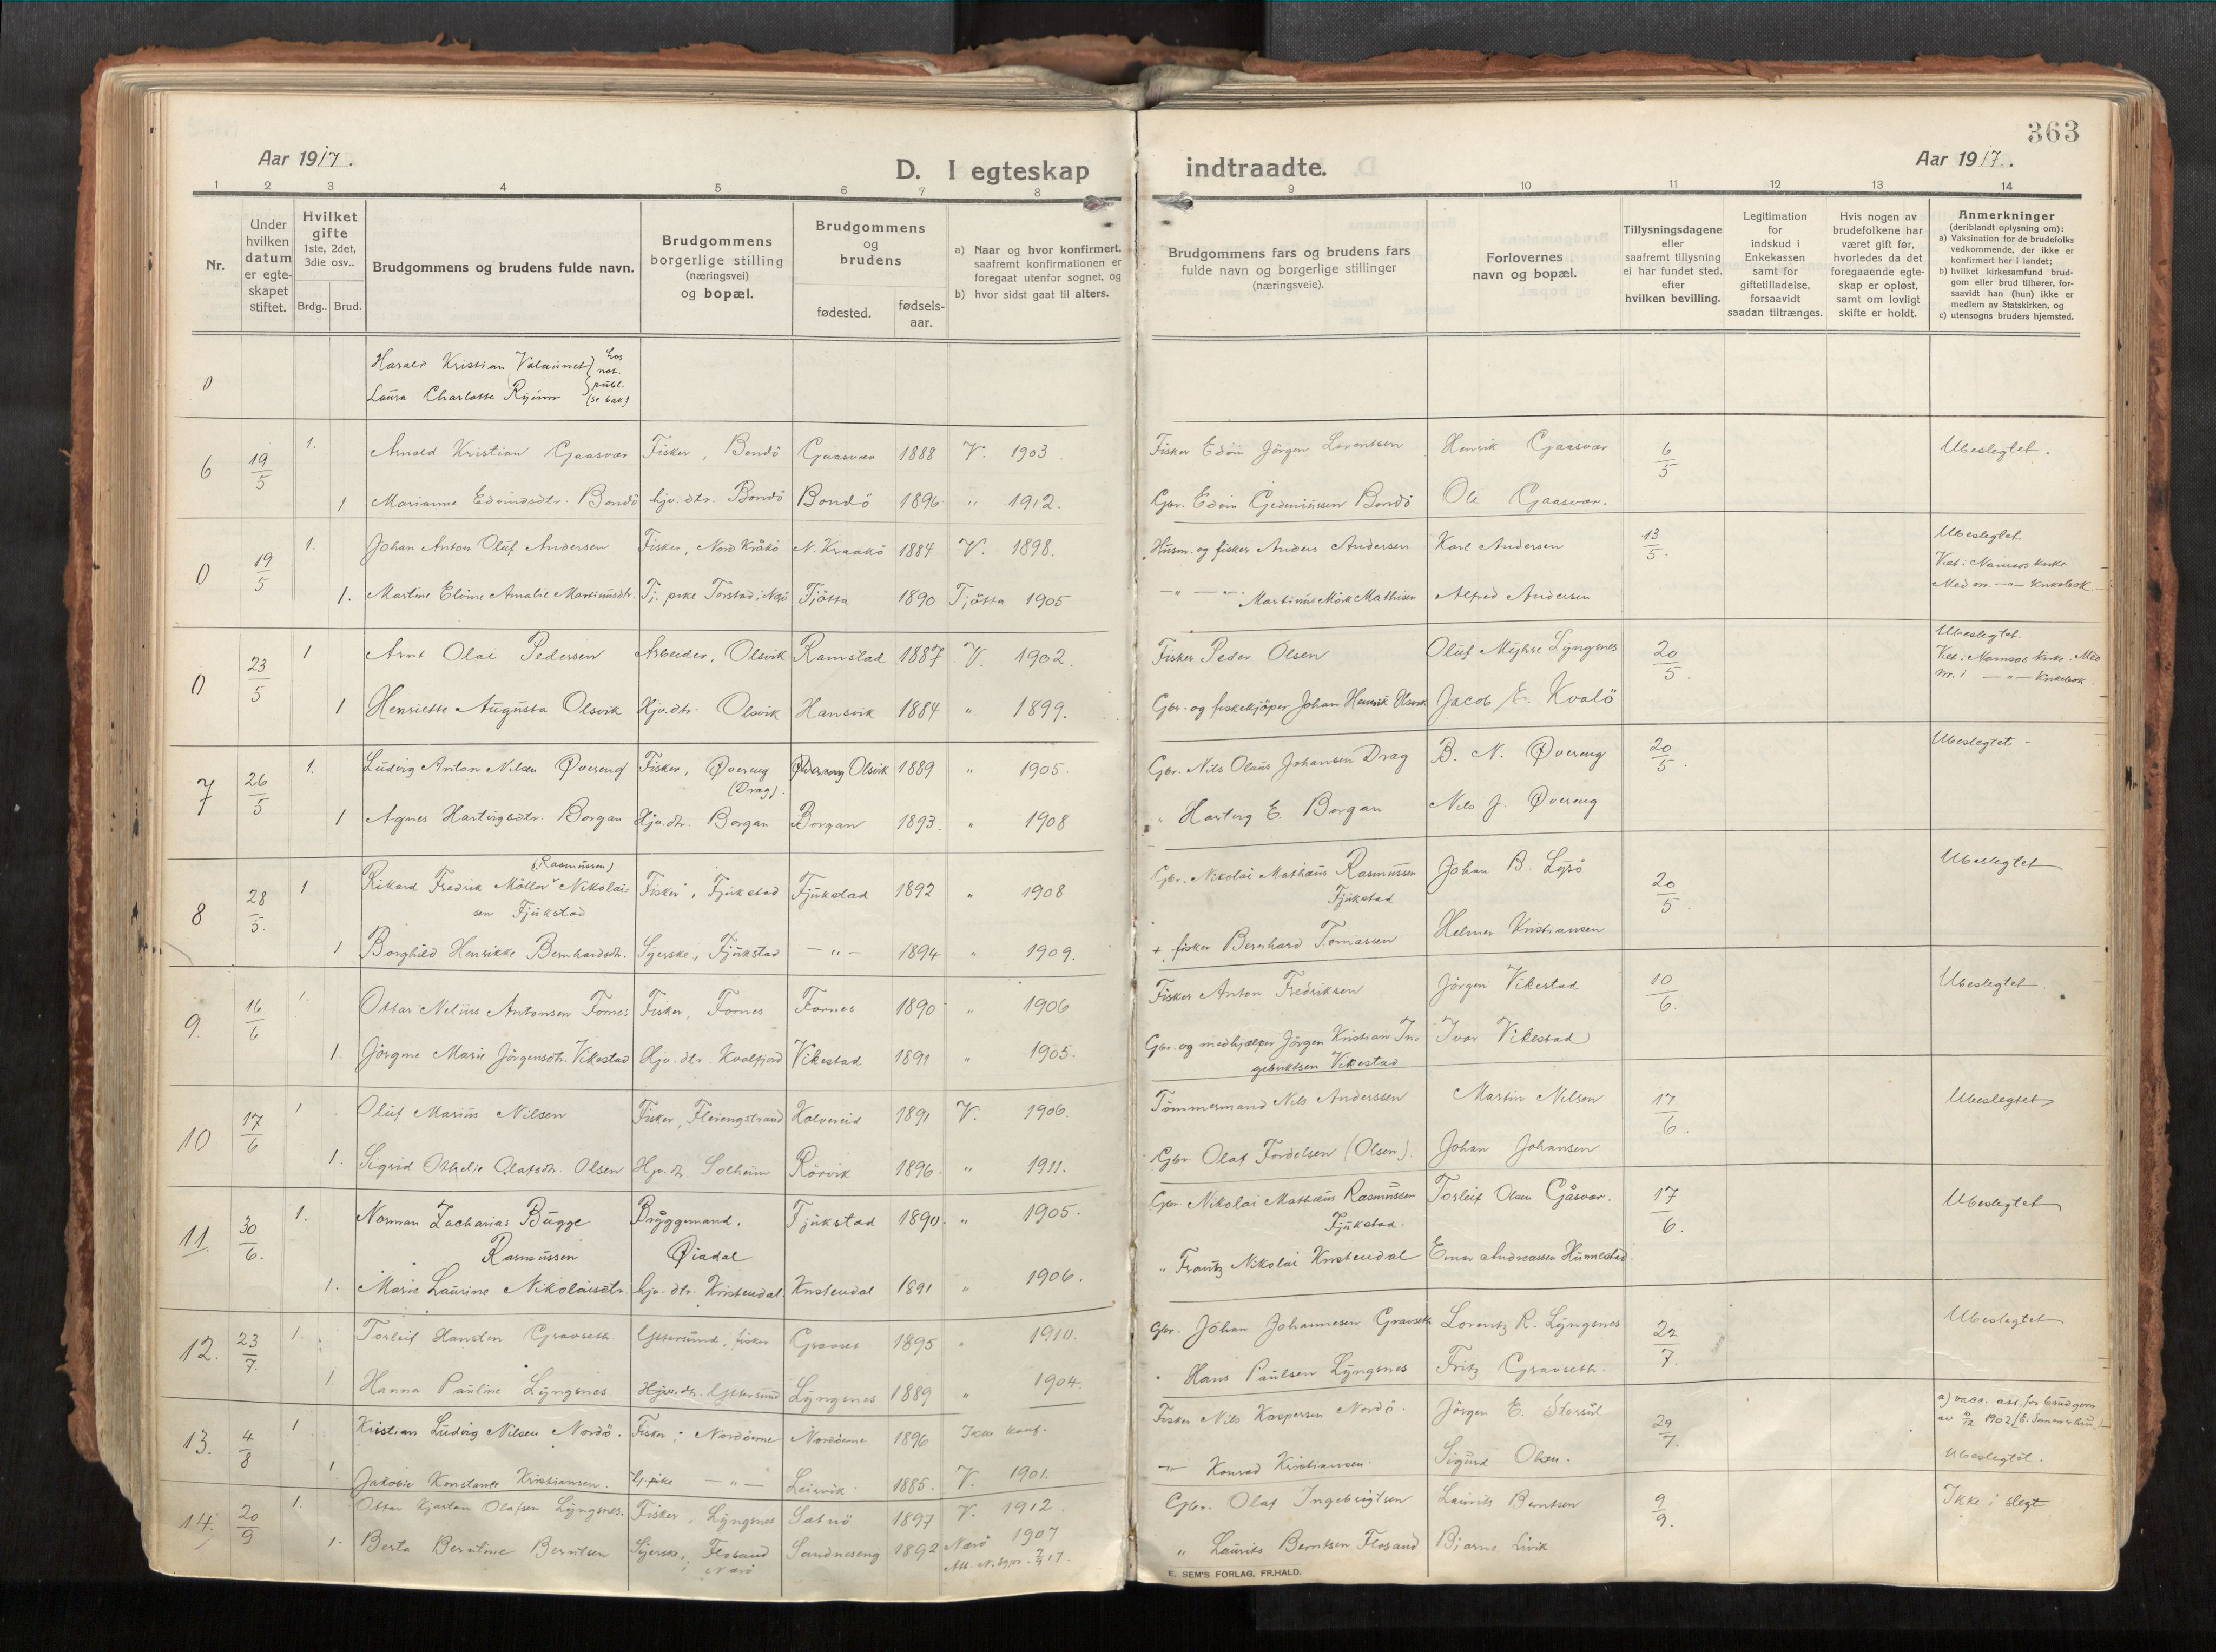 363
Aar 1917.
D. I egteskap indtraadte.
Aar 1917.
1 2 3 4 5 6 7 8 9 10 11 12 13 14
Nr.
Under hvilken datum er egteskapet stiftet.
Hvilket gifte 1ste, 2det, 3die osv..
Brdg.. Brud.
Brudgommens og brudens fulde navn.
Brudgommens borgerlige stilling (næringsvei) og bopæl.
Brudgommens og brudens
fødested.
fødsels-aar.
a) Naar og hvor konfirmert, saafremt konfirmationen er foregaat utenfor sognet, og
b) hvor sidst gaat til alters.
Brudgommens fars og brudens fars fulde navn og borgerlige stillinger (næringsveie).
Forlovernes navn og bopæl.
Tillysningsdagene eller saafremt tillysning ei har fundet sted. efter hvilken bevilling.
Legitimation for indskud i Enkekassen samt for giftetilladelse, forsaavidt saadan tiltrænges.
Hvis nogen av brudefolkene har været gift før, hvorledes da det foregaaende egteskap er opløst, samt om lovligt skifte er holdt.
Anmerkninger
(deriblandt oplysning om):
a) Vaksination for de brudefolks vedkommende, der ikke er konfirmert her i landet;
b) hvilket kirkesamfund brudgom eller brud tilhører, forsaavidt han (hun) ikke er medlem av Statskirken, og
c) utensogns bruders hjemsted.
0 Harald Kristian Valaunet hos not. publ.
Laura Charlotte (se bak)
6 19/5 1. Arnold Kristian Gaasvær Fisker, Bondö Gaasvær 1888 V. 1903 Fisker Edvin Jörgen Lorentsen Henrik Gaasvær 6/5 Ubeslegtet.
1 Marianne Edvindsdtr. Bondö hjv. dtr. Bondö Bondö 1896 " 1912. Gbr. Edvin Gedeniussen Bondö Ole Gaasvær.
0 19/5 1. Johan Anton Oluf Andersen Fisker, Nord Kråkö N. Kraakö 1884 V. 1898. Husm. og fisker Anders Andersen Karl Andersen 13/5. Ubeslegtet.
Viet i Namsos kirke
1. Martine Eline Amalie Martinusdtr. Tj. pike Torstad i Nærö Tjötta 1890 Tjötta 1905 -"- -"- Martinus Mörk Mathisen Alfred Andersen Med nr. -"- kirkebok
0 23/5 1 Arnt Olai Pedersen Arbeider, Olsvik Ramstad 1887 V. 1902. Fisker Peder Olsen Oluf Myhre Lyngsnes 20/5. Ubeslegtet.
Viet i Namsos kirke. Med nr. 1 -"- kirkebok.
1 Henriette Augusta Olsvik Hjv. dtr. Olsvik Hansvik 1884 " 1899. Gbr. og fiskekjöper Johan Henrik Olsvik Jacob E. Kvalö
7 26/5 1. Ludvig Anton Nilsen Øvereng Fisker, Øvereng (Drag). Olsvik 1889 " 1905. Gbr. Nils Olaus Johansen Drag B. N. Øvereng 20/5. Ubeslegtet -
1 Agnes Hartvigsdtr. Borgan Hjv. dtr. Borgan Borgan 1893. " 1908 " Hartvig E. Borgan Nils J. Øvereng
8 28/5. 1 Rikard Fredrik Möller Nikolaisen (Rasmussen) Fjukstad Fisker, Fjukstad Fjukstad 1892 " 1908 Gbr. Nicolai Mathæus Rasmussen Fjukstad Johan B. Lysö 20/5. Ubeslegtet
1 Borghild Henrikke Bernhardsdtr. Syerske, Fjukstad -"- 1894 " 1909. + fisker Bernhard Tomassen Helmer Kristiansen
9. 16/6 1. Ottar Nelius Antonsen Fornes Fisker, Fornes Fornes 1890 " 1906 Fisker Anton Fredriksen Jörgen Vikestad 10/6. Ubeslegtet.
1. Jörgine Marie Jörgensdtr. Vikestad Hjv. dtr. Kvalfjord Vikestad 1891 " 1905. Gbr. og medhjælper Jörgen Kristian Ingebriktsen Vikestad Ivar Vikestad
10 17/6 1 Oluf Marius Nilsen Fisker, Flerengstrand Kolvereid 1891 V. 1906. Tömmermand Nils Anderssen Martin Nilsen 17/6. Ubeslegtet
1. Sigrid Othelie Olafsdtr. Olsen Hjv. dtr. Solheim Rörvik 1896. " 1911. Gbr. Olaf Fordelsen (Olsen). Johan Johansen
11. 30/6. 1. Norman Zacharias Bugge Rasmussen Bryggemand. Øiadal Fjukstad 1890. " 1905. Gbr. Nikolai Mathæus Rasmussen Fjukstad. Torleif Olsen Gåsvær. 17/6. Ubeslegtet
1. Marie Laurine Nikolaisdtr. hjv. dtr. Kristendal Kristendal 1891 " 1906. " Frantz Nikolai Kristendal Einar Andreassen Hunnestad.
12. 23/7. 1. Torleif Hansten Gravseth Yttersund, fisker Gravset 1895 " 1910. Gbr. Johan Johannesen Gravseth Lorentz R. Lyngsnes 22/7. Ubeslegtet
1. Hanna Pauline Lyngsnes Hjv. dtr. Yttersund Lyngsnes 1889 " 1904. " Hans Paulsen Lyngsnes Fritz Gravseth.
13. 4/8 1 Kristian Ludvig Nilsen Nordö. Fisker, Nordöerne Nordöerne 1896 Ikke konf. Fisker Nils Kaspersen Nordö. Jörgen E. Storsul 29/7. a) vacc. att. for brudgom av 1902
1 Jakobie Konstanse Kristiansen. tj. pike -"- Leirvik 1885. V. 1901. -"- Konrad Kristiansen. Sigurd Olsen. Ubeslegtet.
14. 20/9 1. Ottar Kjartan Olafsen Lyngsnes. Fisker, Lyngsnes Satnö 1897 V. 1912. Gbr. Olaf Ingebrigtsen Laurits Berntsen 9/9. Ikke i slegt
1. Berta Berntine Berntsen Syerske, Flosand Nærö Sandneseng 1892 Nærö 1907 " Laurits Berntsen Flosand Bjarne Livik
E. SEM'S FORLAG, FR.HALD.